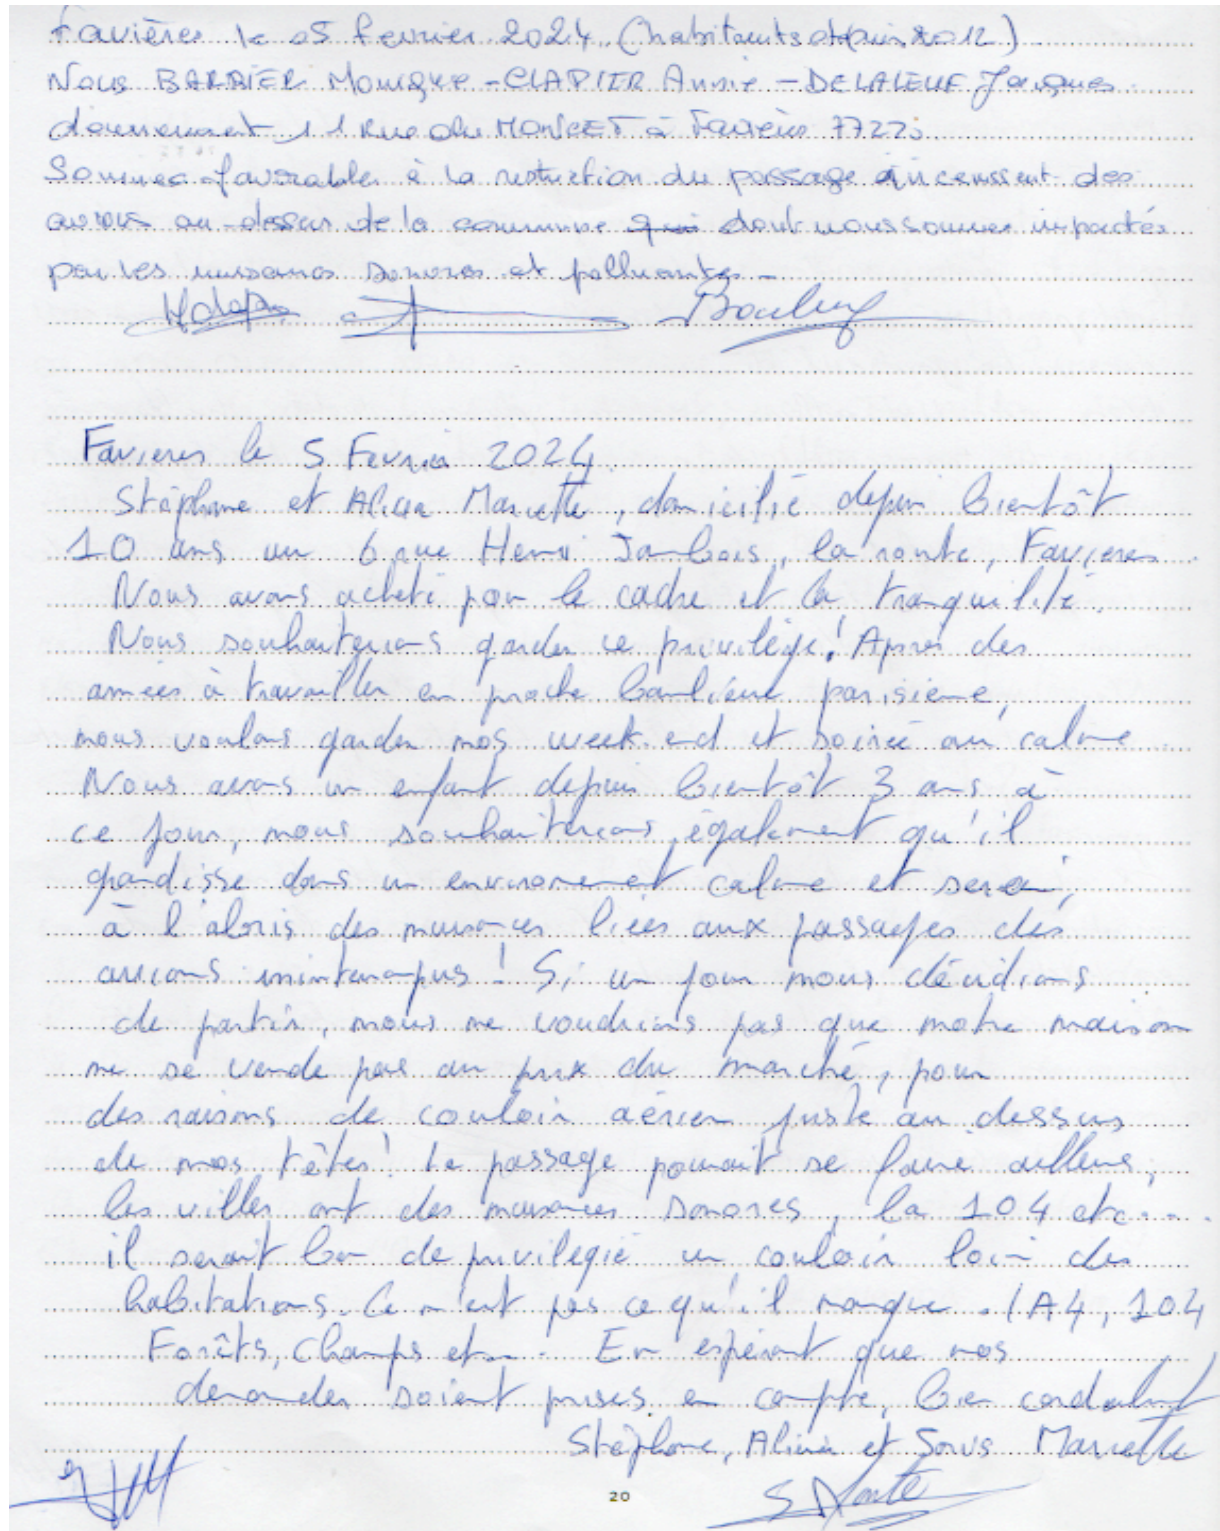 Favières le 05 fevrier 2024 (habitants depuis 2012)
Nous BARBIER Monique - CLAPIER Annie - DELALEUF Jacques
demeurant 11 Rue du MONCET à Favières 77220
Sommes favorables à la restriction du passage des
avions au-dessus de la commune qui dont nous sommes impactés
par les nuisances sonores et polluantes -
Favieres le 5 Fevrier 2024
Stéphane et Alicia Marcette, domicilié depuis bientôt
10 ans au 6 rue Henri Jambois, la route, Favieres
Nous avons acheté pour le cadre et la tranquilité.
Nous souhaiterions garder ce privilège! Après des
années à travailler en proche banlieue parisiene,
nous voulons garder nos week end et soirée au calme
Nous avons un enfant depuis bientôt 3 ans à
ce jour, nous souhaiterions également qu'il
grandisse dans un environement calme et serein,
à l'abris des nuisances liées aux passages des
avions inintérompus! Si un jour nous décidions
de partir, nous ne voudrions pas que notre maison
ne se vende pas au prix du marché, pour
des raisons de couloir aérien juste au dessus
de nos têtes! Le passage pourrait se faire ailleurs,
les villes ont des nuisances sonores, la 104 etc...
il serait bon de privilegié un couloir loin des
habitations. Ce n'est pas ce qu'il manque. (A4, 104
Forêts, Champs etc... En espérant que nos
demandes soient prises en compte, bien cordialmt
Stéphane, Alicia et Marcette
20